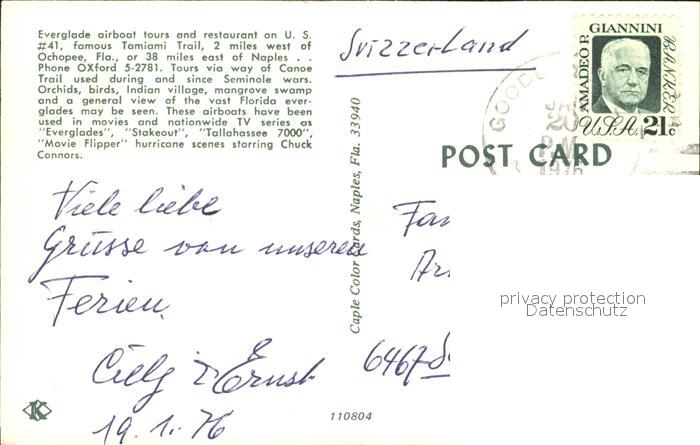 Everglade airboat tours and restaurant on U. S.
#41, famous Tamiami Trail, 2 miles west of
Ochopee, Fla., or 38 miles east of Naples . .
Phone OXford 5-2781. Tours via way of Canoe
Trail used during and since Seminole wars.
Orchids, birds, Indian village, mangrove swamp
and a general view of the vast Florida ever-
glades may be seen. These airboats have been
used in movies and nationwide TV series as
"Everglades", "Stakeout", "Tallahassee 7000",
"Movie Flipper" hurricane scenes starring Chuck
Connors.
Svizzerland
AMADEO P. GIANNINI
BANKER
USA 21c
JAN
20
PM
1976
POST CARD
Caple Color Cards, Naples, Fla. 33940
Viele liebe
Grüsse von unseren
Ferien.
Ernst
19.1.76
Fa
Ar
6467
privacy protection
Datenschutz
K
110804